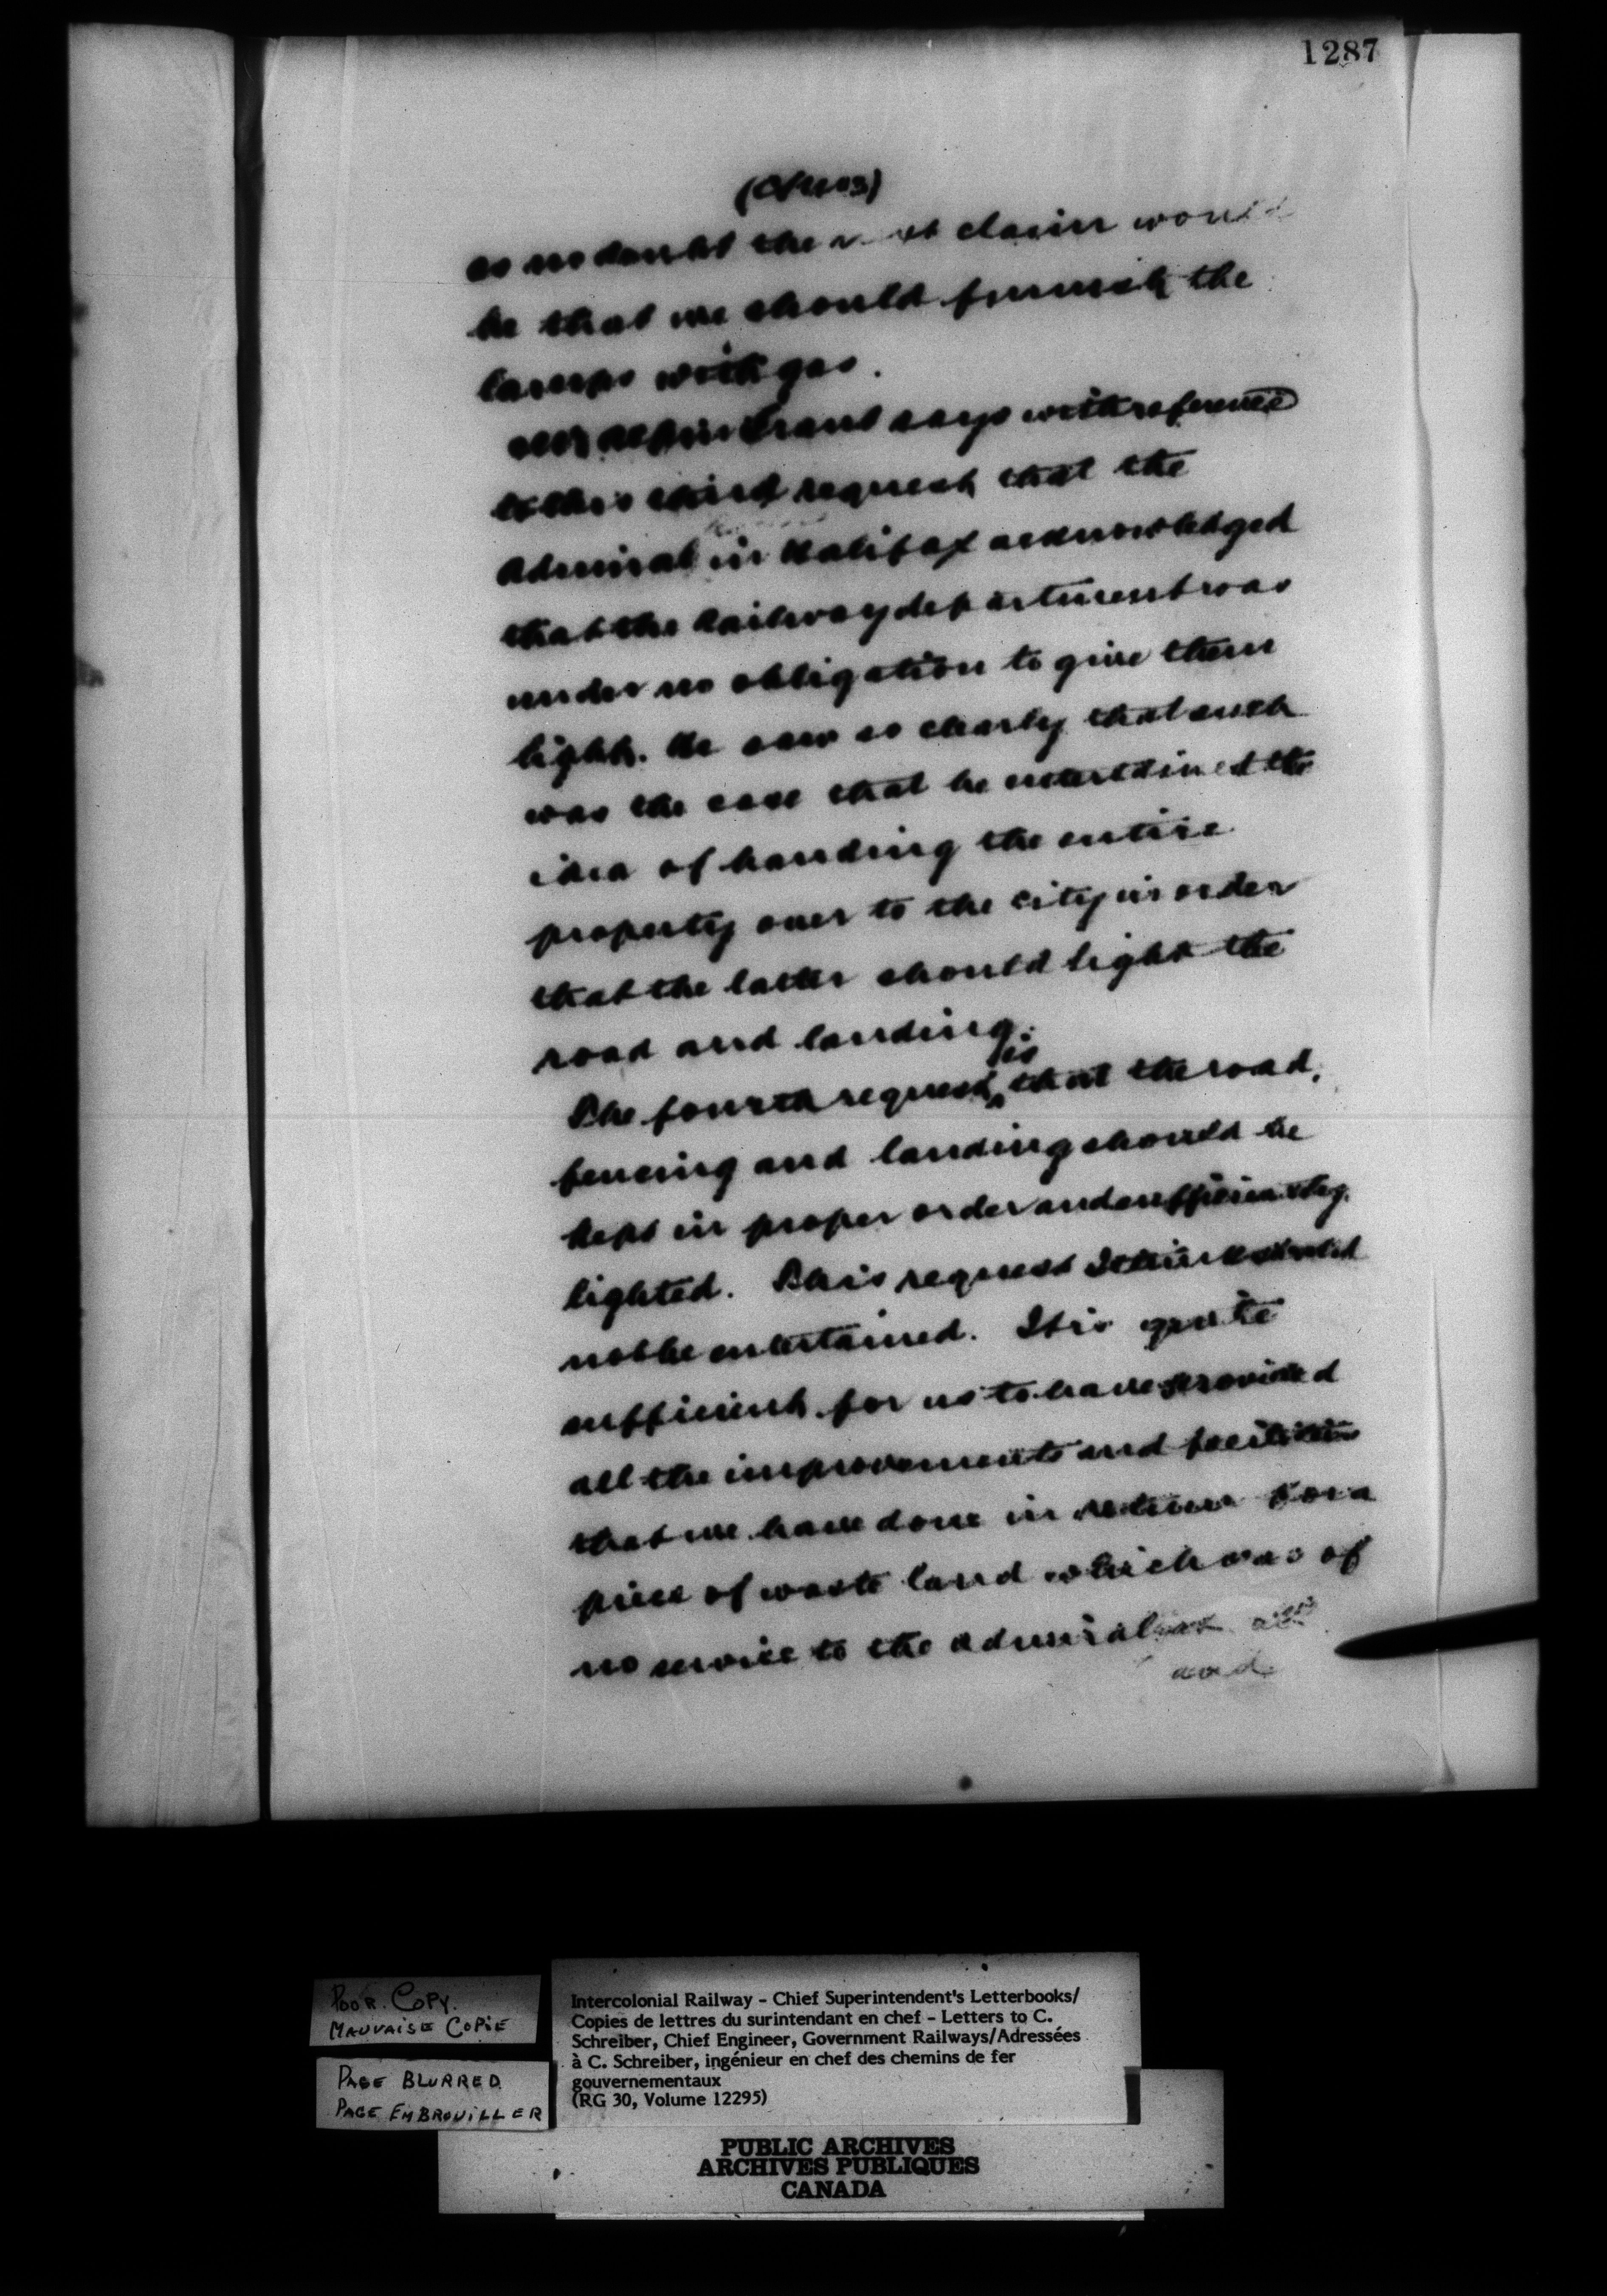 1287
as no doubt the next claim would
be that we should furnish the
lamps with gas.
says with reference
to this third request that the
Admiral in Halifax acknowledged
that the Railway department was
under no obligation to give them
light. He saw so clearly that such
was the case that he entertained the
idea of handing the entire
property over to the city in order
that the latter should light the
road and landing.
The fourth request is that the road,
fencing and landing should be
kept in proper order and sufficiently
lighted. This request I think should
not be entertained. It is quite
sufficient for us to have provided
all the improvements and facilities
that we have done in return for a
piece of waste land which was of
no service to the admiral at all
and
POOR COPY.
MAUVAISE COPIE
PAGE BLURRED
PAGE EMBROUILLER
Intercolonial Railway - Chief Superintendent's Letterbooks/
Copies de lettres du surintendant en chef - Letters to C.
Schreiber, Chief Engineer, Government Railways/Adressées
à C. Schreiber, ingénieur en chef des chemins de fer
gouvernementaux
(RG 30, Volume 12295)
PUBLIC ARCHIVES
ARCHIVES PUBLIQUES
CANADA